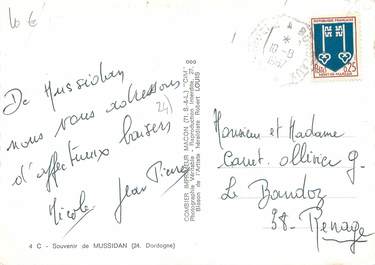 10 €
De Mussidan
nous vous adressons
d'affectueux baisers
24)
Nicole Jean Pierre
4 C - Souvenir de MUSSIDAN (24. Dordogne)
COMBIER IMPRIMEUR MACON (71. S.-&-L.) "CIM"
Photographie Véritable - Reproduction Interdite
Blason de l'Artiste héraldiste Robert LOUIS
10-8
1967
REPUBLIQUE FRANÇAISE
0,25
MONT-DE-MARSAN
Monsieur et Madame
Ollivier g.
Le Bandoz
38- Renage